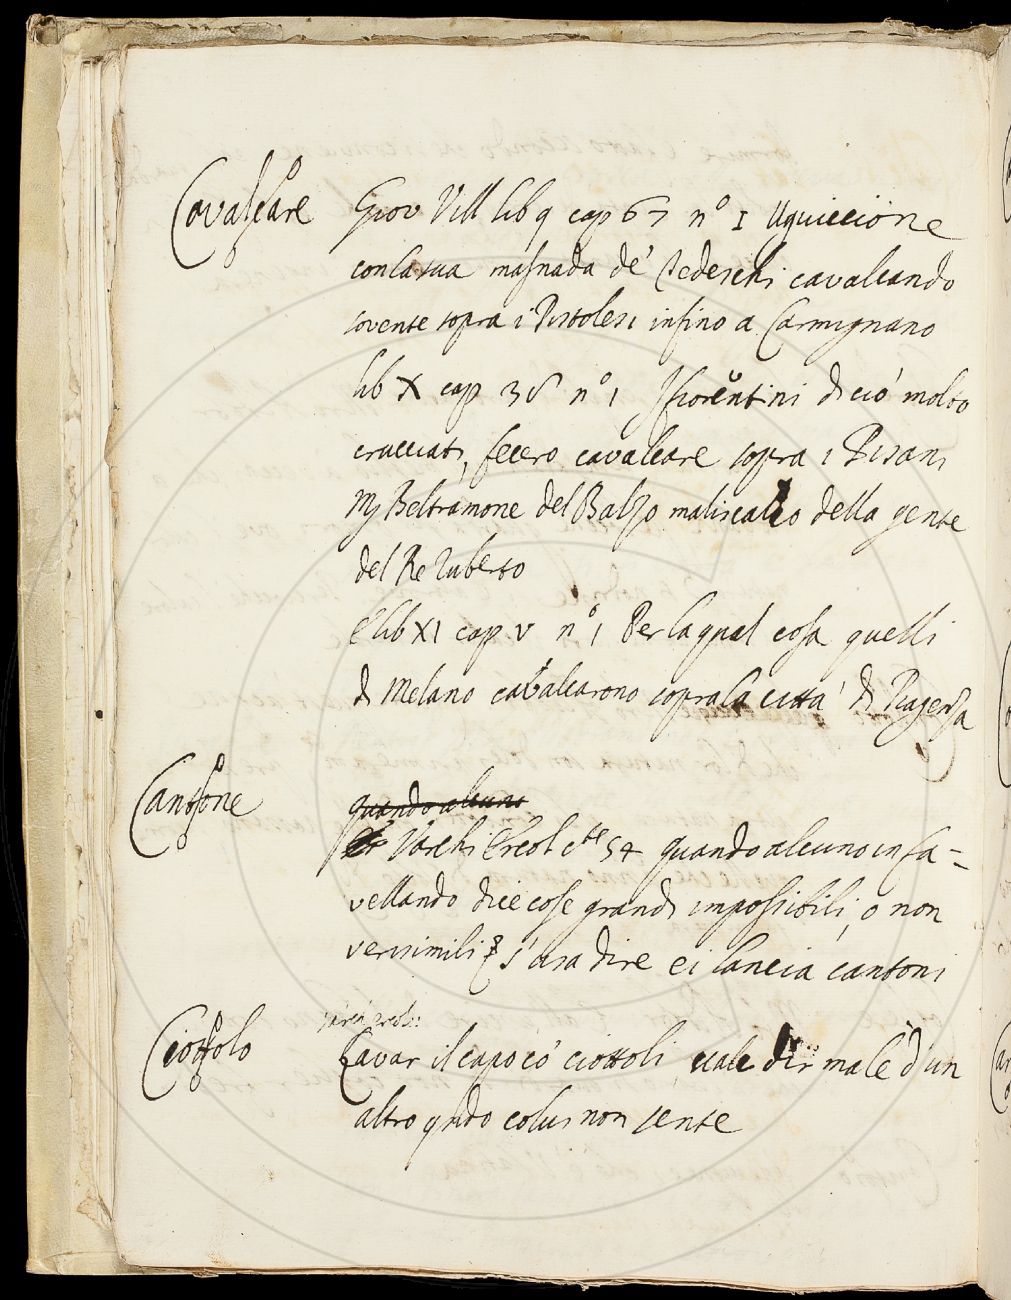 Cavalcare Giov Vill lib 9 cap 67 n° 1 Uguiccione
con la sua masnada de' Tedeschi cavalcando
sovente sopra i Pistolesi infino a Carmignano
lib X cap 36 n° 1 I fiorentini di ciò molto
crucciati, fecero cavalcare sopra i Pisani
Beltramone del Balzo maliscalco della gente
del Re Ruberto
E lib XI cap V n° 1 Per la qual cosa quelli
di Melano cavalcarono sopra la città di Piagenza
Cantone quando alcuno
Varchi Ercol cte 54 quando alcuno in fa=
vellando dice cose grandi impossibili, o non
verisimili s'usa dire ei lancia cantoni
Ciottolo Lavar il capo co' ciottoli, vale dir male d'un
altro qndo colui non sente